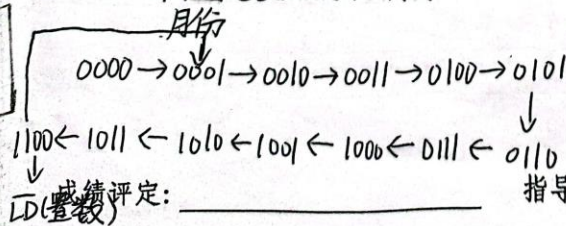 月份
0000→0001→0010→0011→0100→0101
↓
1100←1011←1010←1001←1000←0111←0110
↓
成绩评定: 指导
L̅D̅(置数)